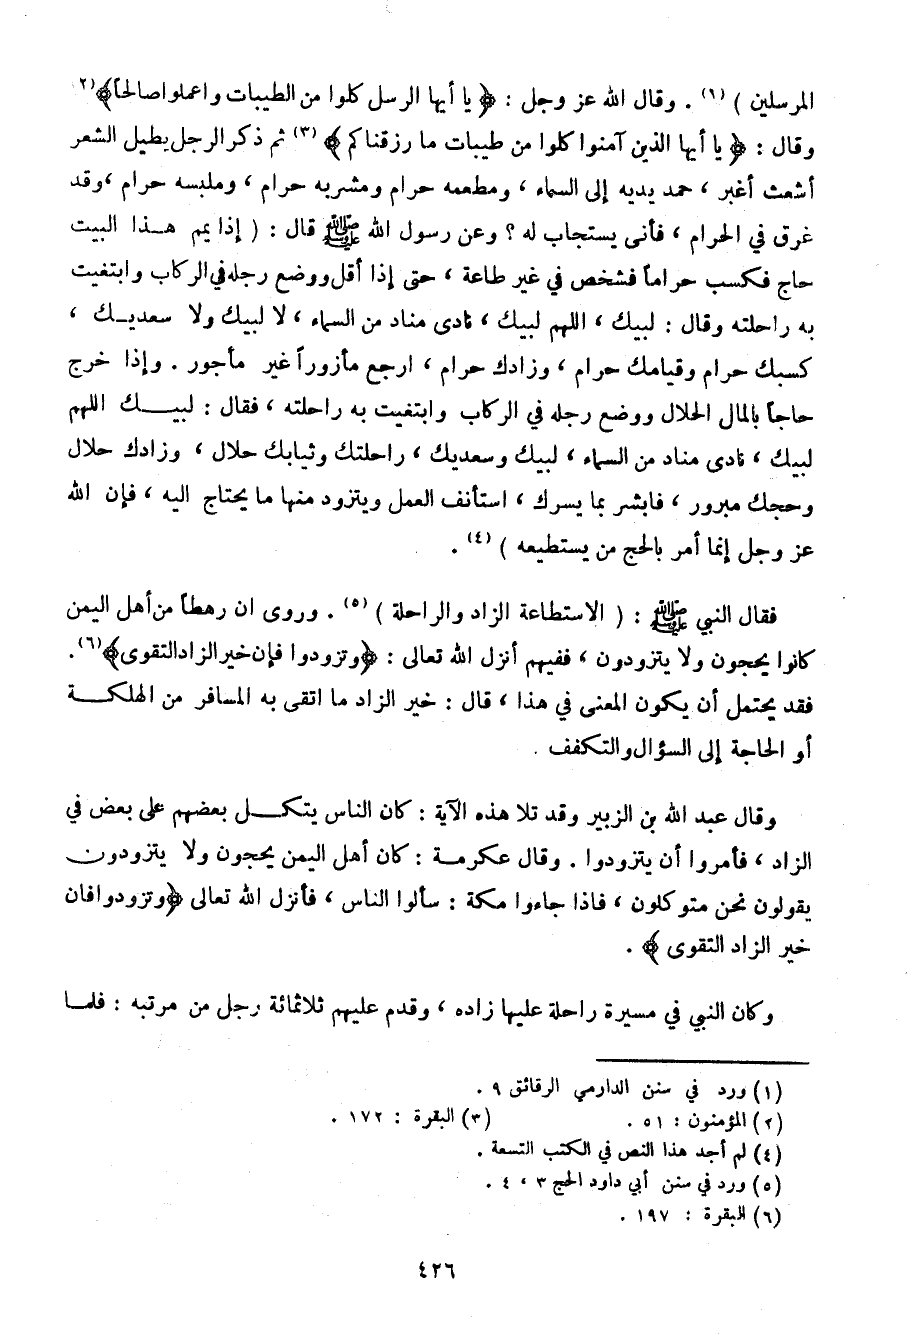 المرسلين ) (١) . وقال الله عز وجل : ﴿ يا أيها الرسل كلوا من الطيبات واعملوا صالحاً﴾(٢
وقال : ﴿ يا أيها الذين آمنوا كلوا من طيبات ما رزقناكم ﴾ (٣) ثم ذكر الرجل يطيل الشعر
أشعث أغبر ، حمد يديه إلى السماء ، ومطعمه حرام ومشربه حرام ، وملبسه حرام ،وقد
غرق في الحرام ، فأنى يستجاب له ؟ وعن رسول الله ﷺ قال : ( إذا يم هـذا البيت
حاج فكسب حراماً فشخص في غير طاعة ، حتى إذا أقل ووضع رجله في الركاب وابتغيت
به راحلته وقال : لبيك ، اللهم لبيك ، نادى مناد من السماء ، لا لبيك ولا سعديـك ،
كسبك حرام وقيامك حرام ، وزادك حرام ، ارجع مأزوراً غير مأجور . وإذا خرج
حاجاً بالمال الحلال ووضع رجله في الركاب وابتغيت به راحلته ، فقال : لبيـــك اللهم
لبيك ، نادى مناد من السماء ، لبيك وسعديك ، راحلتك وثيابك حلال ، وزادك حلال
وحجك مبرور ، فابشر بما يسرك ، استأنف العمل ويتزود منها ما يحتاج اليه ، فإن الله
عز وجل إنما أمر بالحج من يستطيعه ) (٤) .
فقال النبي ﷺ : ( الاستطاعة الزاد والراحلة ) (٥) . وروى ان رهطاً من أهل اليمن
كانوا يحجون ولا يتزودون ، ففيهم أنزل الله تعالى : ﴿وتزودوا فإن خير الزاد التقوى﴾(٦).
فقد يحتمل أن يكون المعنى في هذا ، قال : خير الزاد ما اتقى به المسافر من الهلكـــة
أو الحاجة إلى السؤال والتكفف .
وقال عبد الله بن الزبير وقد تلا هذه الآية : كان الناس يتكـــل بعضهم على بعض في
الزاد ، فأمروا أن يتزودوا . وقال عكرمة : كان أهل اليمن يحجون ولا يتزودون
يقولون نحن متوكلون ، فاذا جاءوا مكة : سألوا الناس ، فأنزل الله تعالى ﴿وتزودوا فان
خير الزاد التقوى ﴾ .
وكان النبي في مسيرة راحلة عليها زاده ، وقدم عليهم ثلاثمائة رجل من مرتبه : فلمـا
(١) ورد في سنن الدارمي الرقائق ٩ .
(٢) المؤمنون : ٥١ . (٣) البقرة : ١٧٢ .
(٤) لم أجد هذا النص في الكتب التسعة .
(٥) ورد في سنن أبي داود الحج ٣ ، ٤ .
(٦) البقرة : ١٩٧ .
٤٢٦